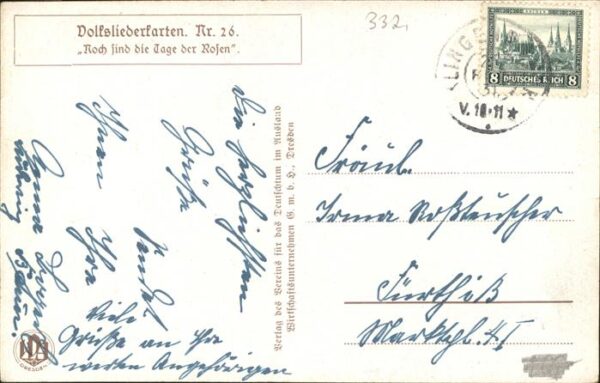 Volksliederkarten. Nr. 26.
„Noch sind die Tage der Rosen“.
332,
DEUTSCHES REICH
8 8
KLING
V. 10-11 ★
Die herzlichsten
Grüße
sendet
Ihnen
Ihre
Anna
Viele
Grüße an Ihre
werten Angehörigen
Verlag des Vereins für das Deutschtum im Ausland
Wirtschaftsunternehmen G. m. b. H., Dresden
Fräul.
Irma Roßteuscher
Fürth i/B
Marktpl. 4 I
DRESDEN